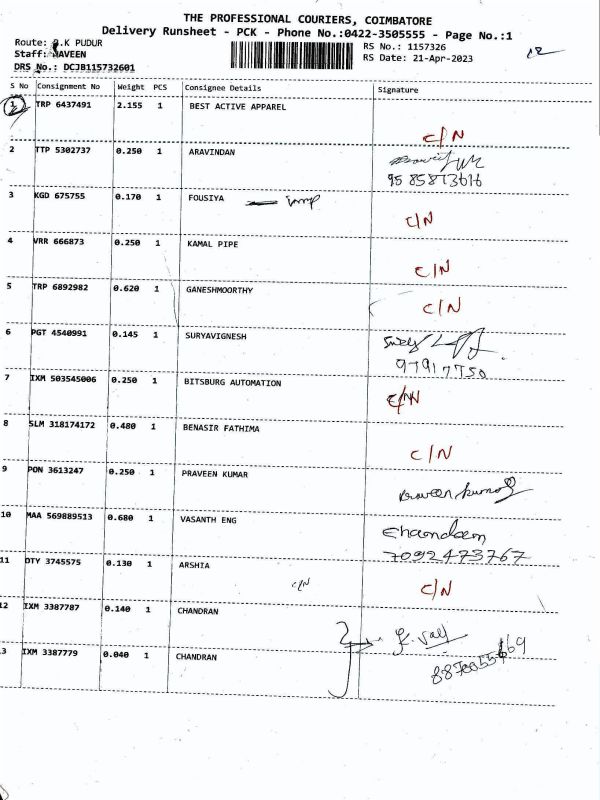 THE PROFESSIONAL COURIERS, COIMBATORE
Delivery Runsheet - PCK - Phone No.:0422-3505555 - Page No.:1
Route: G.K PUDUR RS No.: 1157326
Staff: NAVEEN RS Date: 21-Apr-2023
DRS No.: DCJB115732601
S No Consignment No Weight PCS Consignee Details Signature
1 TRP 6437491 2.155 1 BEST ACTIVE APPAREL
C/N
2 TTP 5302737 0.250 1 ARAVINDAN
9585873616
3 KGD 675755 0.170 1 FOUSIYA — imp
C/N
4 VRR 666873 0.250 1 KAMAL PIPE
C/N
5 TRP 6892982 0.620 1 GANESHMOORTHY
C/N
6 PGT 4540991 0.145 1 SURYAVIGNESH
97917750
7 IXM 503545006 0.250 1 BITSBURG AUTOMATION
C/N
8 SLM 318174172 0.480 1 BENASIR FATHIMA
C/N
9 PON 3613247 0.250 1 PRAVEEN KUMAR
Praveen kumar
10 MAA 569889513 0.680 1 VASANTH ENG
7092473767
11 OTY 3745575 0.130 1 ARSHIA
C/N C/N
12 IXM 3387787 0.140 1 CHANDRAN
13 IXM 3387779 0.040 1 CHANDRAN